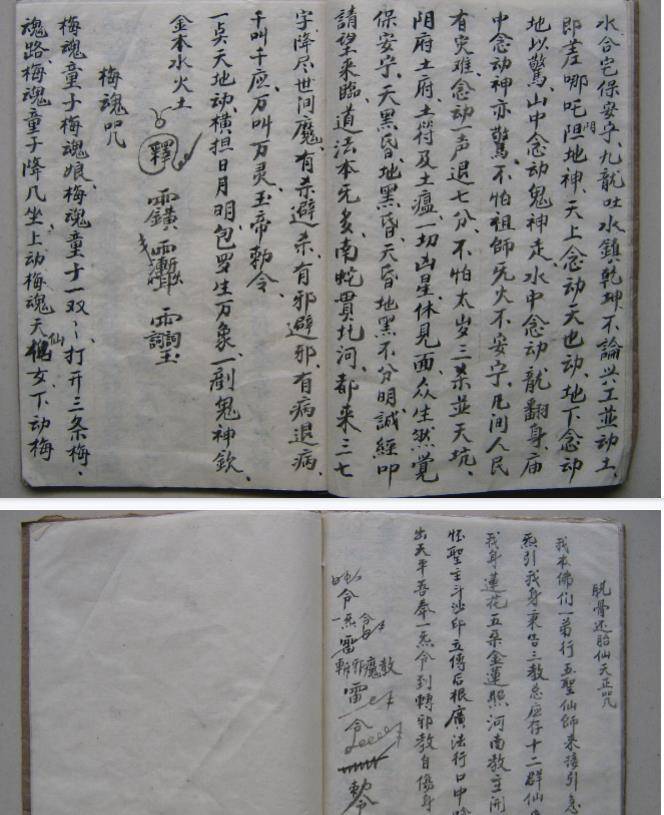 水合宅保安宁、九龍吐水鎮乾坤不論兴工並动土、
即差哪吒阻地神、天上念动天也动、地下念动
地以驚、山中念动鬼神走、水中念动龍翻身、庙
中念动神亦驚、不怕祖師先火不安宁、凡间人民
有灾难、念动一声退七分、不怕太岁三杀並天坑、
阴府土府、土符及土瘟、一切凶星休見面、众生然覚
保安宁、天黑昏、地黑昏、天昏地黑不分明、誠經叩
請望来臨、道法本无多、南蛇貫北河、都来三七
字、降尽世间魔、有杀避杀、有邪避邪、有病退病、
千叫千应、万叫万灵、玉帝勅令、
一点天地动、横担日月明、包罗生万象、一剖鬼神欽、
金木水火土
釋
梅魂咒
梅魂童子梅魂娘、梅魂童子一双々、打开三条梅、
魂路、梅魂童子降几坐、上动梅魂天仙女、下动梅
脱骨还胎仙天正咒
我本佛们一弟行五聖仙師来接引急
炁引我身秉告三教总应存十二群仙
我身蓮花五朵金蓮照河南教主開
怀聖主斗沙印立傳后根廣法行口中
出天平吾奉一炁令到轉邪教自傷身
令一炁雷
斬邪魔教
雷
令
勅令